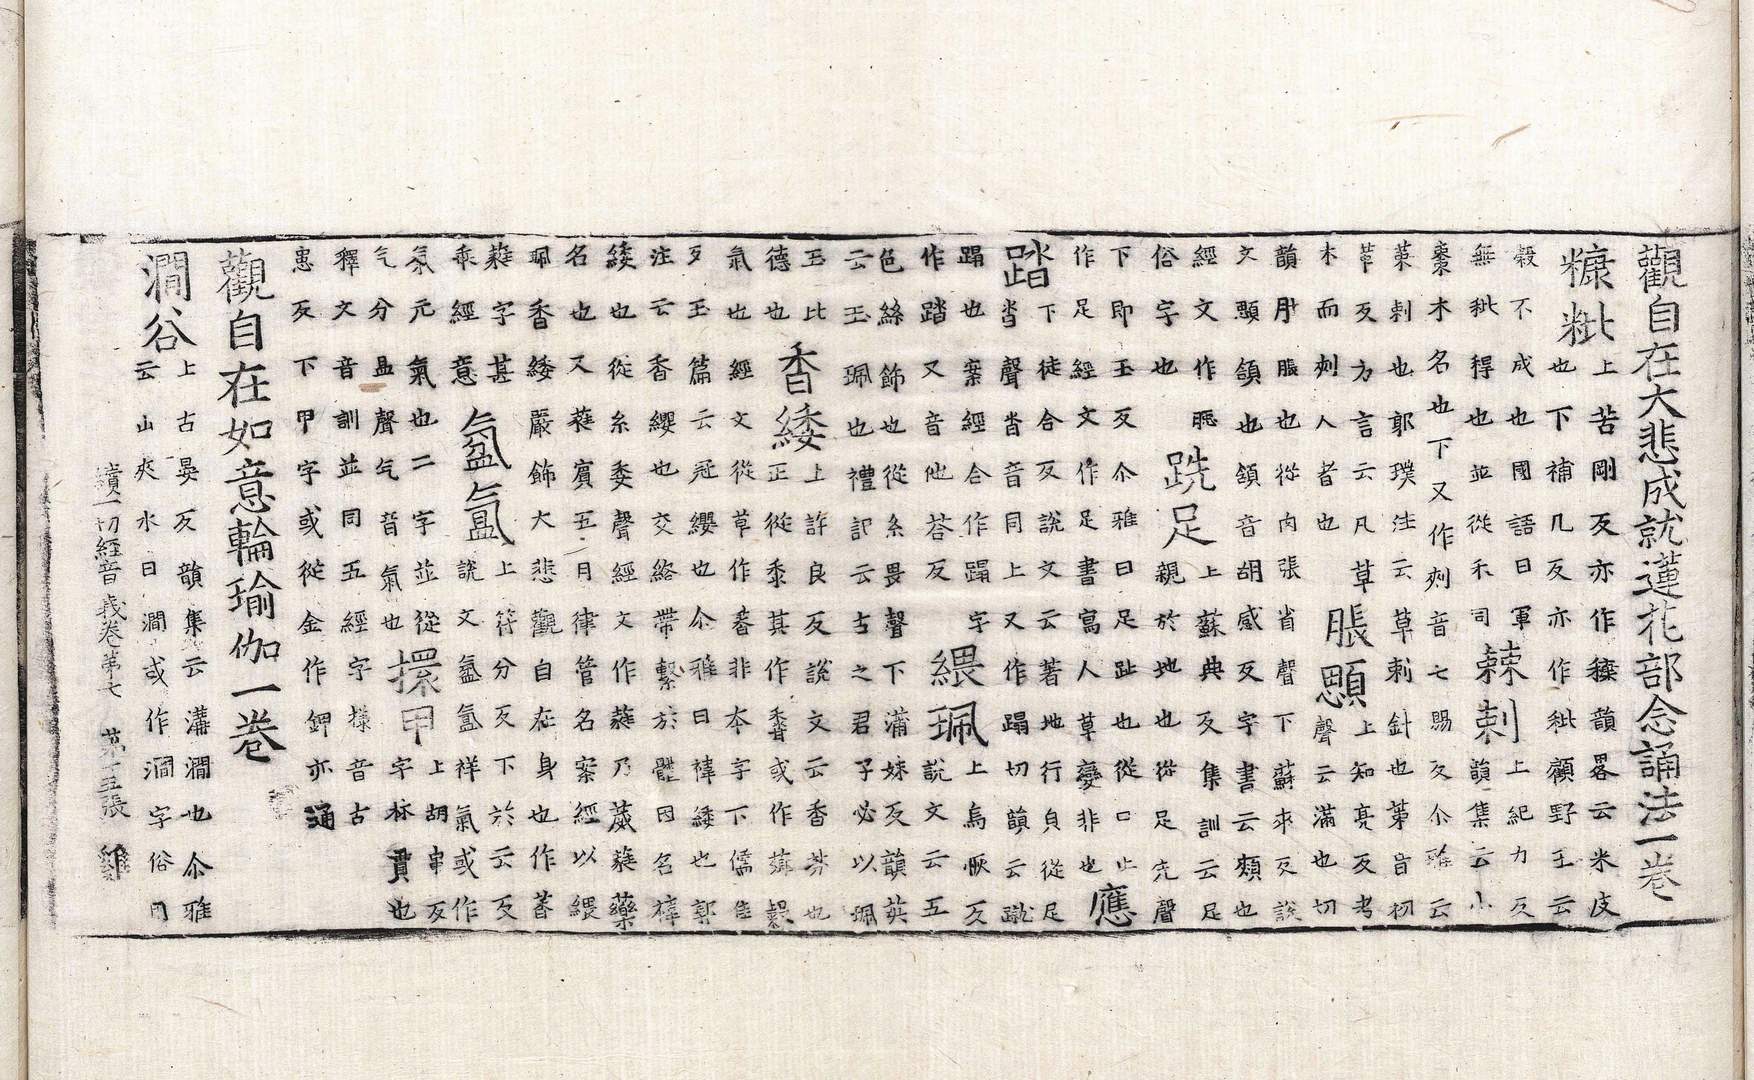 觀自在大悲成就蓮花部念誦法一卷
糠粃上苦剛反亦作穅韻畧云米皮
也下補几反亦作秕顧野王云
穀不成也國語曰軍
無秕稈也並從禾司棘刺上紀力反
韻集云小
棗木名也下又作刾音七賜反尒雅云
茦刺也郭璞注云草刺針也茦音初
革反方言云凡草
木而刾人者也脹顋上知亮反考
聲云滿也切
韻肘脹也從肉張省聲下蘇來反說
文顋頷也頷音胡感反字書云頰也
經文作䏮
俗字也跣足上蘇典反集訓云足
親於地也從足先聲
下即玉反尒雅曰足趾也從口止
作足經文作足書寫人草變非也應
踏下徒合反說文云著地行皃從足
沓聲沓音同上又作蹋切韻云蹴
蹋也案經合作蹋字
作踏又音他荅反䋿珮上烏恢反
說文云五
色絲飾也從糸畏聲下蒲妹反韻英
云玉珮也禮記云古之君子必以珮
玉比
德也香緌上許良反說文云香芬也
正從黍其作香或作薌穀
氣也經文從草作萫非本字下儒隹
反玉篇云冠纓也尒雅曰褘緌也郭
注云香纓也交絡帶繫於體因名褘
緌也從糸委聲經文作蕤乃葳蕤藥
名也又蕤賓五月律管名案經以䋿
珮香緌嚴飾大悲觀自在身也作萫
蕤字甚
乖經意氛氳上符分反下於云反
說文氛氳祥氣或作
氛元氣也二字並從
气分昷聲气音氣也擐甲上胡串反
字林貫也
釋文音訓並同五經字樣音古
患反下甲字或從金作鉀亦通
觀自在如意輪瑜伽一卷
澗谷上古晏反韻集云溝澗也尒雅
云山夾水曰澗或作㵎字俗用
續一切經音義卷第七 第十五張 雞